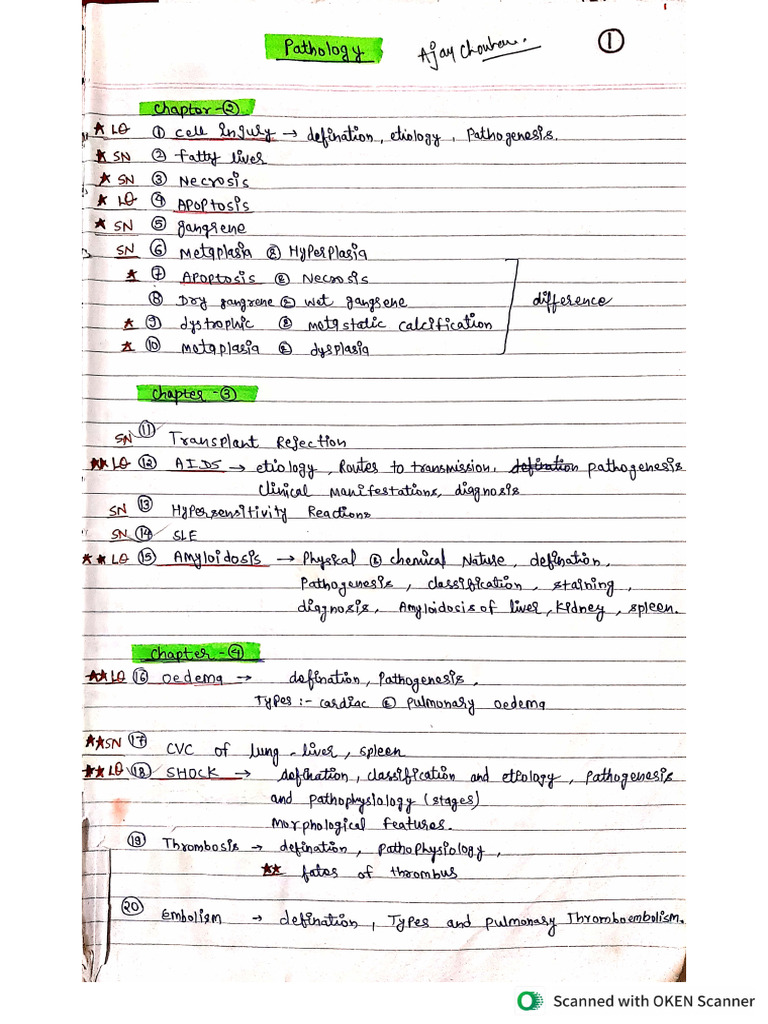 Pathology Ajay Chouhan. ①
Chapter-②
★ LQ ① Cell Injury → defination, etiology, Pathogenesis.
★ SN ② Fatty liver
★ SN ③ Necrosis
★ LQ ④ APOPTOSIS
★ SN ⑤ gangrene
SN ⑥ Metaplasia & Hyperplasia
★ ⑦ APOPTOSIS & Necrosis
⑧ Dry gangrene & wet gangrene
difference
★ ⑨ dystrophic & metastatic calcification
★ ⑩ metaplasia & dysplasia
Chapter-③
SN ⑪ Transplant Rejection
★★ LQ ⑫ AIDS → etiology, Routes to transmission, pathogenesis
Clinical manifestations, diagnosis
SN ⑬ Hypersensitivity Reactions
SN ⑭ SLE
★★ LQ ⑮ Amyloidosis → Physical & chemical Nature, defination,
Pathogenesis, classification, staining,
diagnosis, Amyloidosis of liver, Kidney, spleen.
Chapter-④
★★ LQ ⑯ Oedema → defination, Pathogenesis,
Types:- cardiac & pulmonary oedema
★★ SN ⑰ CVC of lung-liver, spleen
★★ LQ ⑱ SHOCK → defination, classification and etiology, Pathogenesis
and pathophysiology (stages)
Morphological features.
⑲ Thrombosis → defination, pathophysiology,
★★ fates of thrombus
⑳ Embolism → defination, Types and pulmonary Thromboembolism.
Scanned with OKEN Scanner